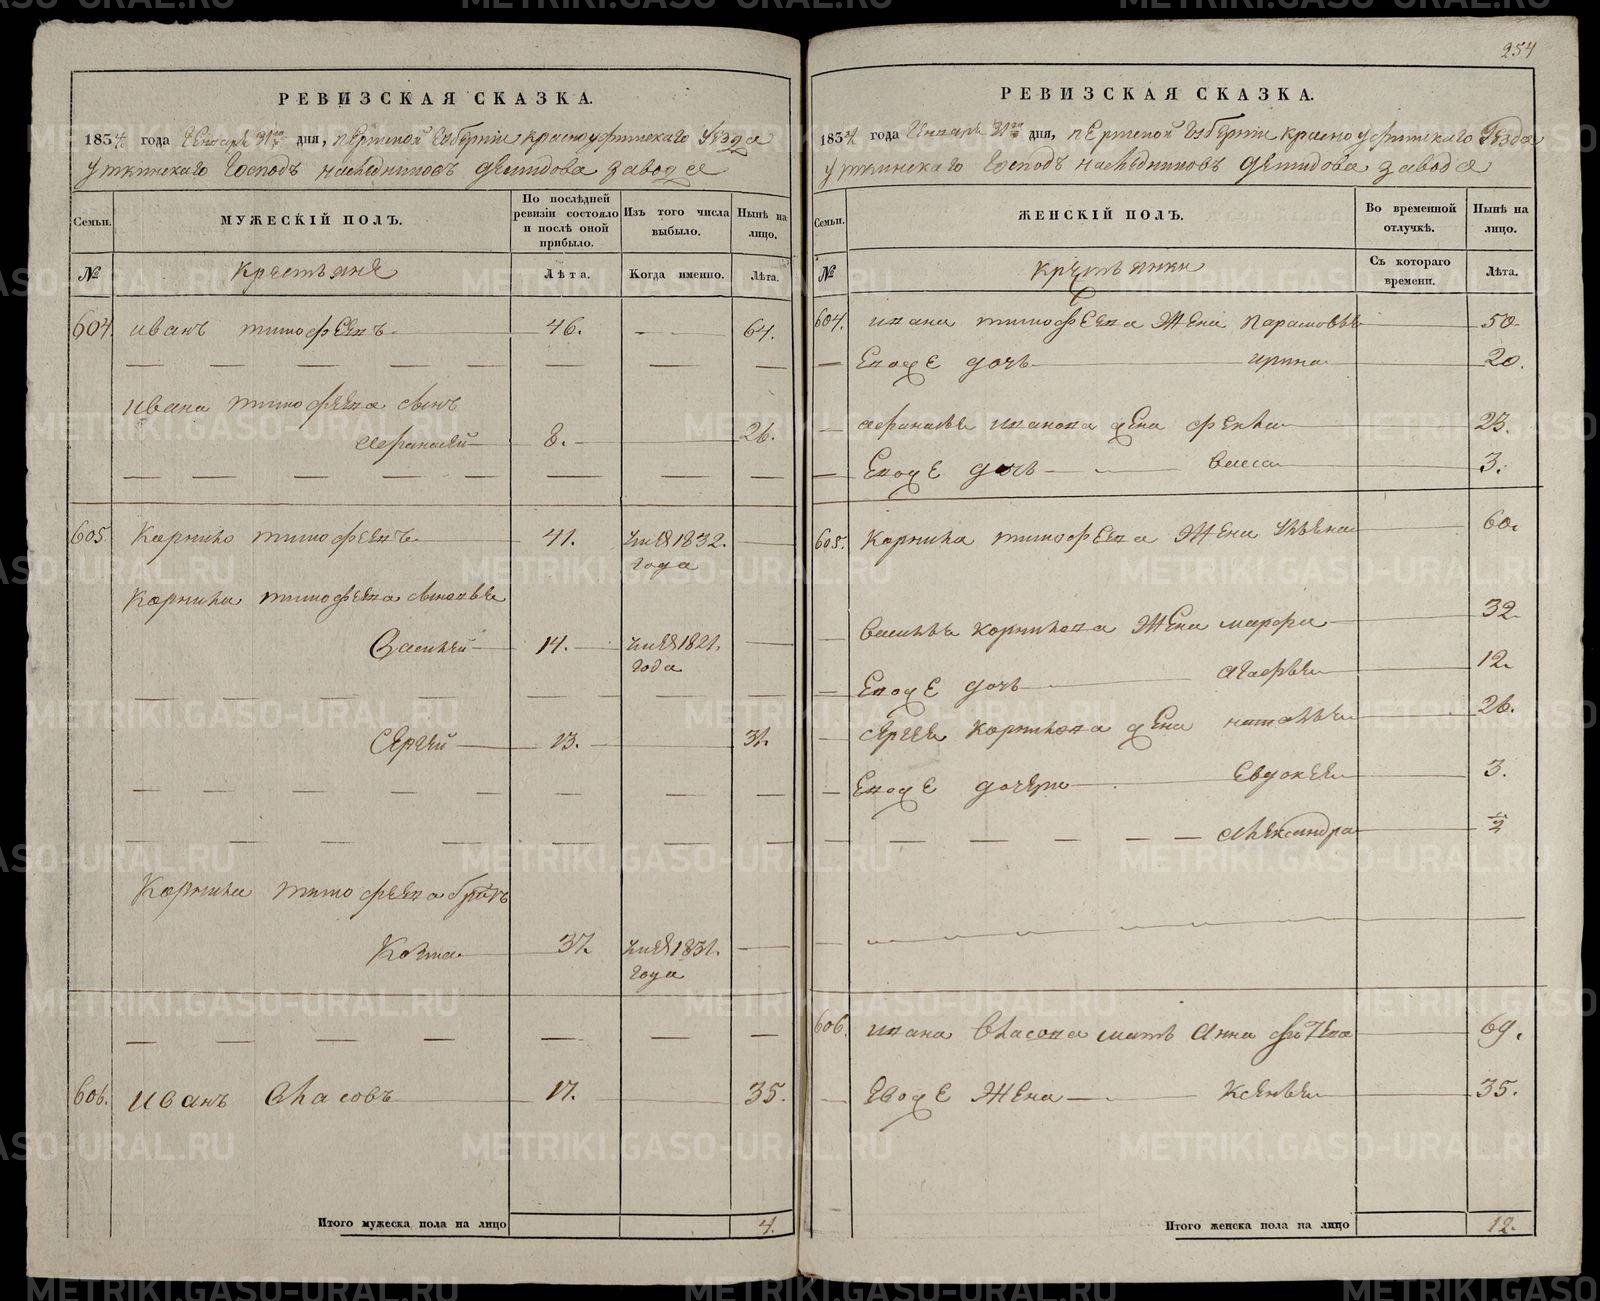 254
РЕВИЗСКАЯ СКАЗКА.
1834 года Генваря 31го дня, пермской губернiи красноуфимскаго уезда
уткинскаго господъ наследниковъ демидова завода
Семьи.
МУЖЕСКIЙ ПОЛЪ.
По послѣдней ревизіи состояло и послѣ оной прибыло.
Изъ того числа выбыло.
Нынѣ на лицо.
№
крестьяне
Лѣта.
Когда именно.
Лѣта.
604. иванъ тимофеевъ 46. 64.
ивана тимофеева сынъ
Афанасей 8. 26.
605. Корнило тимофеевъ 41. 1832. года
Корнила тимофеева сыновья
Василей 14. 1821. года
Сергей 13. 31.
Корнила тимофеева братъ
Козма 37. 1831. года
606. иванъ власовъ 17. 35.
Итого мужеска пола на лицо 4.
РЕВИЗСКАЯ СКАЗКА.
1834 года Генваря 31го дня, пермской губернiи красноуфимскаго уезда
уткинскаго господъ наследниковъ демидова завода
Семьи.
ЖЕНСКIЙ ПОЛЪ.
Во временной отлучкѣ.
Нынѣ на лицо.
№
крестьянки
Съ котораго времени.
Лѣта.
604. ивана тимофеева жена парасковья 50.
Евоже дочь ирина 20.
Афанасья иванова жена фекла 23.
Евоже дочь васса 3.
605. Корнила тимофеева жена ульяна 60.
василья корнилова жена марфа 32.
Евоже дочь агафья 12.
сергея корнилова жена наталья 26.
Евоже дочери Евдокея 3.
Александра ½
606. ивана власова мать Анна 69.
Евоже жена ксенья 35.
Итого женска пола на лицо 12.
METRIKI.GASO-URAL.RU